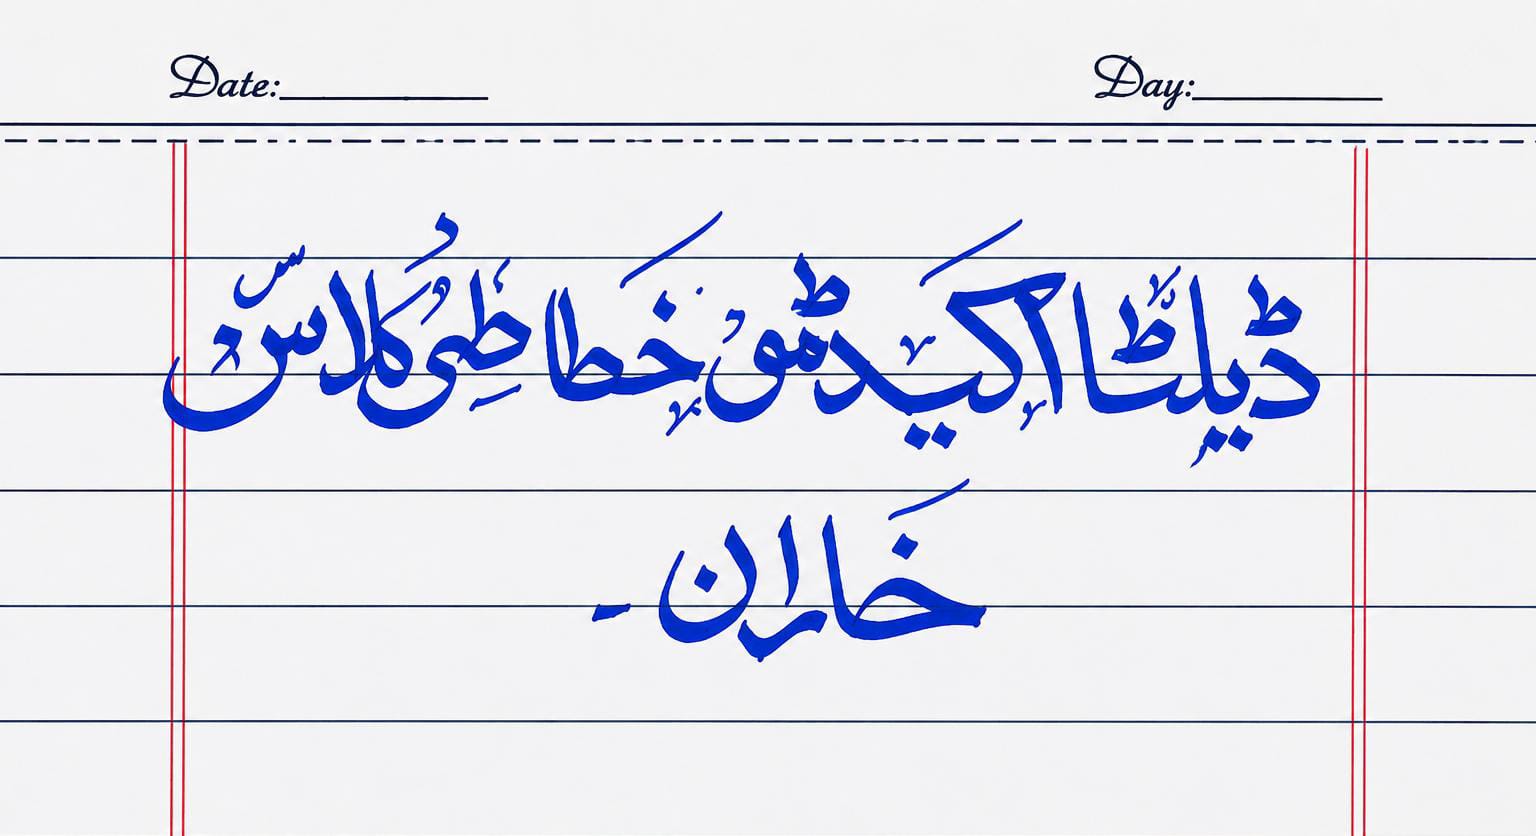 Date:__________ Day:__________
ڈیلٹا اکیڈمی خطاطی کلاس
خاران۔